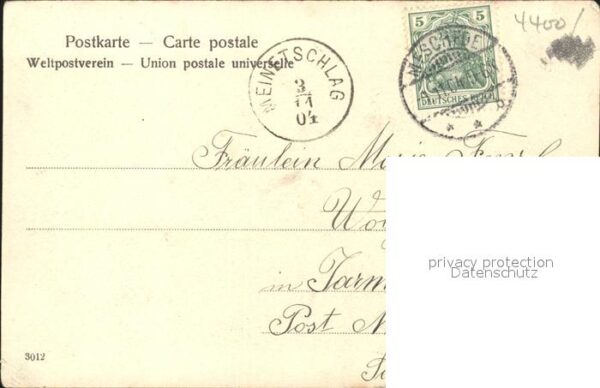 4400/
Postkarte — Carte postale
Weltpostverein — Union postale universelle
5 5
DEUTSCHES REICH
MESCHEDE
MEINETSCHLAG
3
11
04
Fräulein Marie
in
Post
privacy protection
Datenschutz
3012